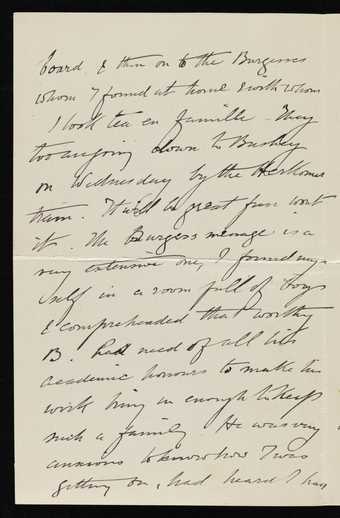 board & then on to the Burgesses
whom I found at home & with whom
I took tea en famille. They
too are going down to Bushey
on Wednesday by the Herkomer
train. It will be great fun wont
it. The Burgess menage is a
very extensive one, I found my-
self in a room full of boys
& comprehended that worthy
B. had need of all his
academic honours to make his
work bring in enough to keep
such a family He was very
anxious to know how I was
getting on, had heard I has